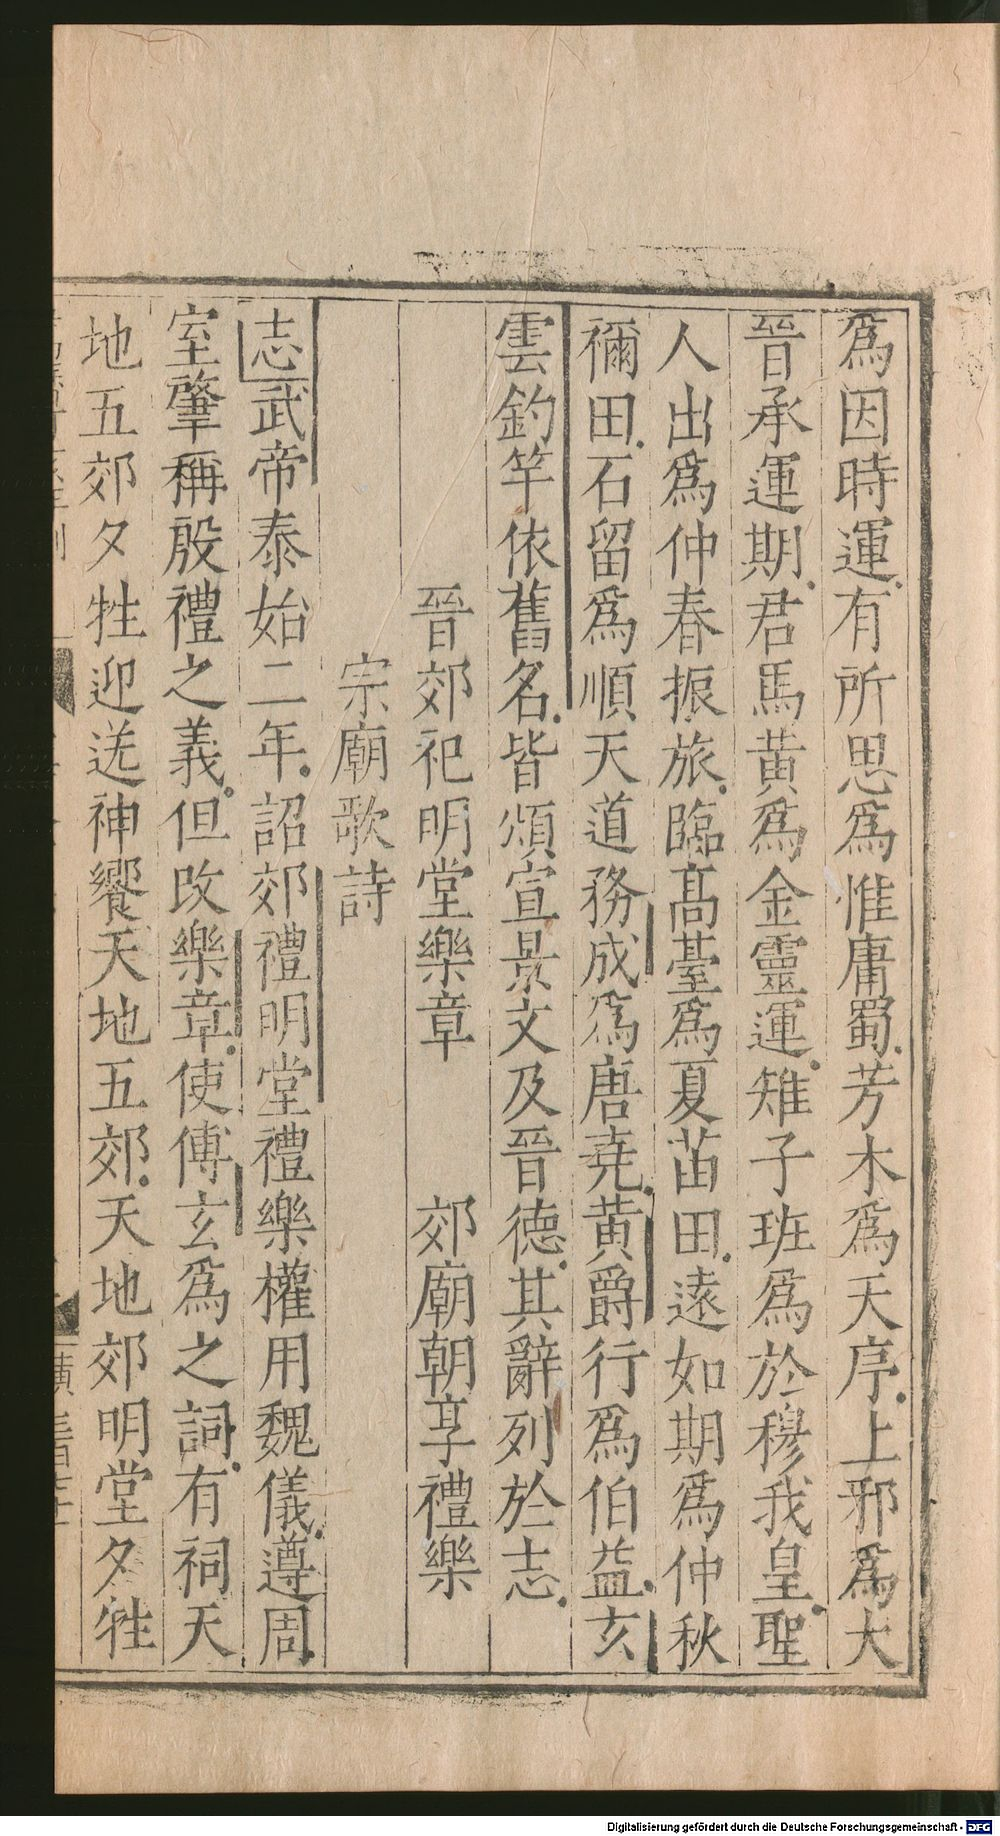 爲因時運有所思爲惟庸蜀芳木爲天序上邪爲大
晉承運期君馬黄爲金靈運雉子班爲於穆我皇聖
人出爲仲春振旅臨髙臺爲夏苗田遠如期爲仲秋
獮田石留爲順天道務成爲唐堯黄爵行爲伯益玄
雲釣竿依舊名皆頌宣景文及晉德其辭列於志
晉郊祀明堂樂章　郊廟朝享禮樂
宗廟歌詩
志武帝泰始二年詔郊禮明堂禮樂權用魏儀遵周
室肇稱殷禮之義但改樂章使傅玄爲之詞有祠天
地五郊夕牲迎送神饗天地五郊天地郊明堂夕牲
Digitalisierung gefördert durch die Deutsche Forschungsgemeinschaft - DFG